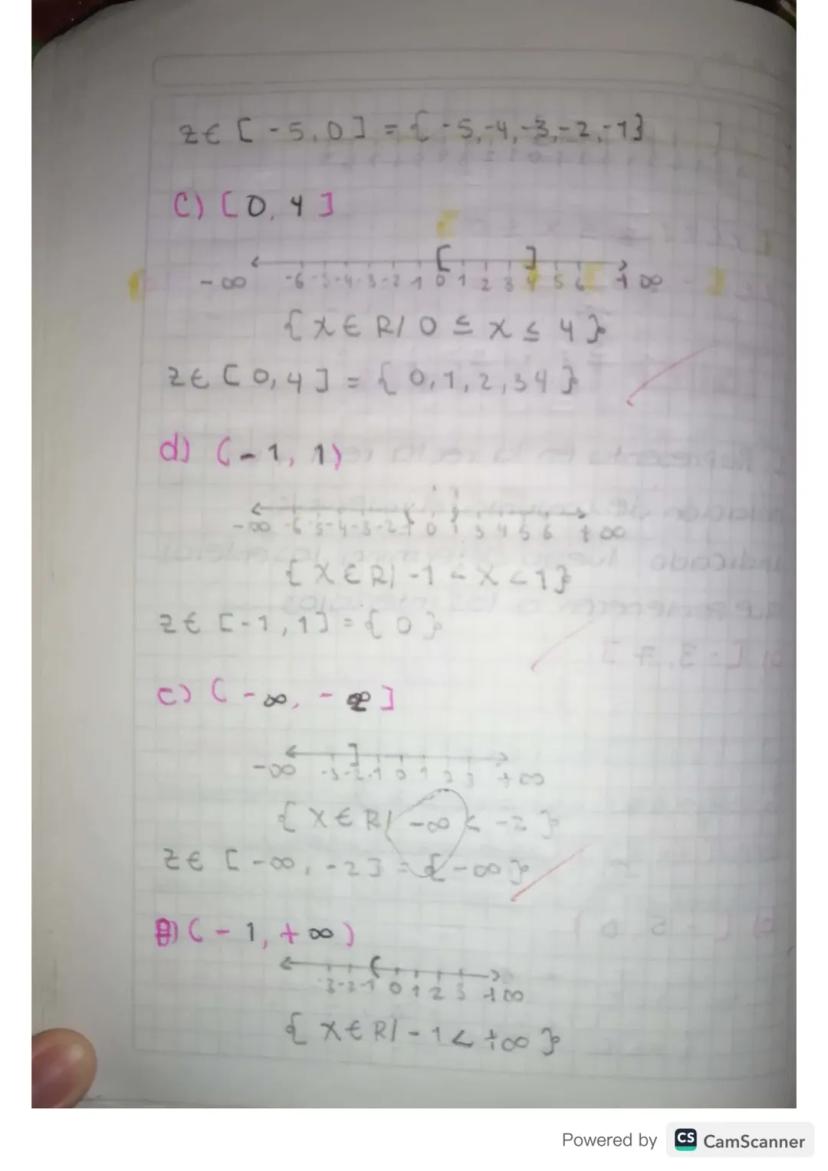 Z∈ [-5,0] = {-5,-4,-3,-2,-1}
C) [0,4]
-∞ -6 -5 -4 -3 -2 -1 0 1 2 3 4 5 6 +∞
{X∈R/ 0 ≤ x ≤ 4}
Z∈ [0,4] = {0,1,2,34}
d) (-1, 1)
-∞ -6 -5 -4 -3 -2 -1 0 1 3 4 5 6 +∞
{X∈R/ -1 < X < 1}
Z∈ [-1,1] = {0}
e) (-∞, -2]
-∞ -3 -2 -1 0 1 2 3 +∞
{X∈R/ -∞ < -2}
Z∈ [-∞, -2] = {-∞}
(-1, +∞)
-3 -2 -1 0 1 2 3 +∞
{X∈R/ -1 < +∞}
Powered by CS CamScanner